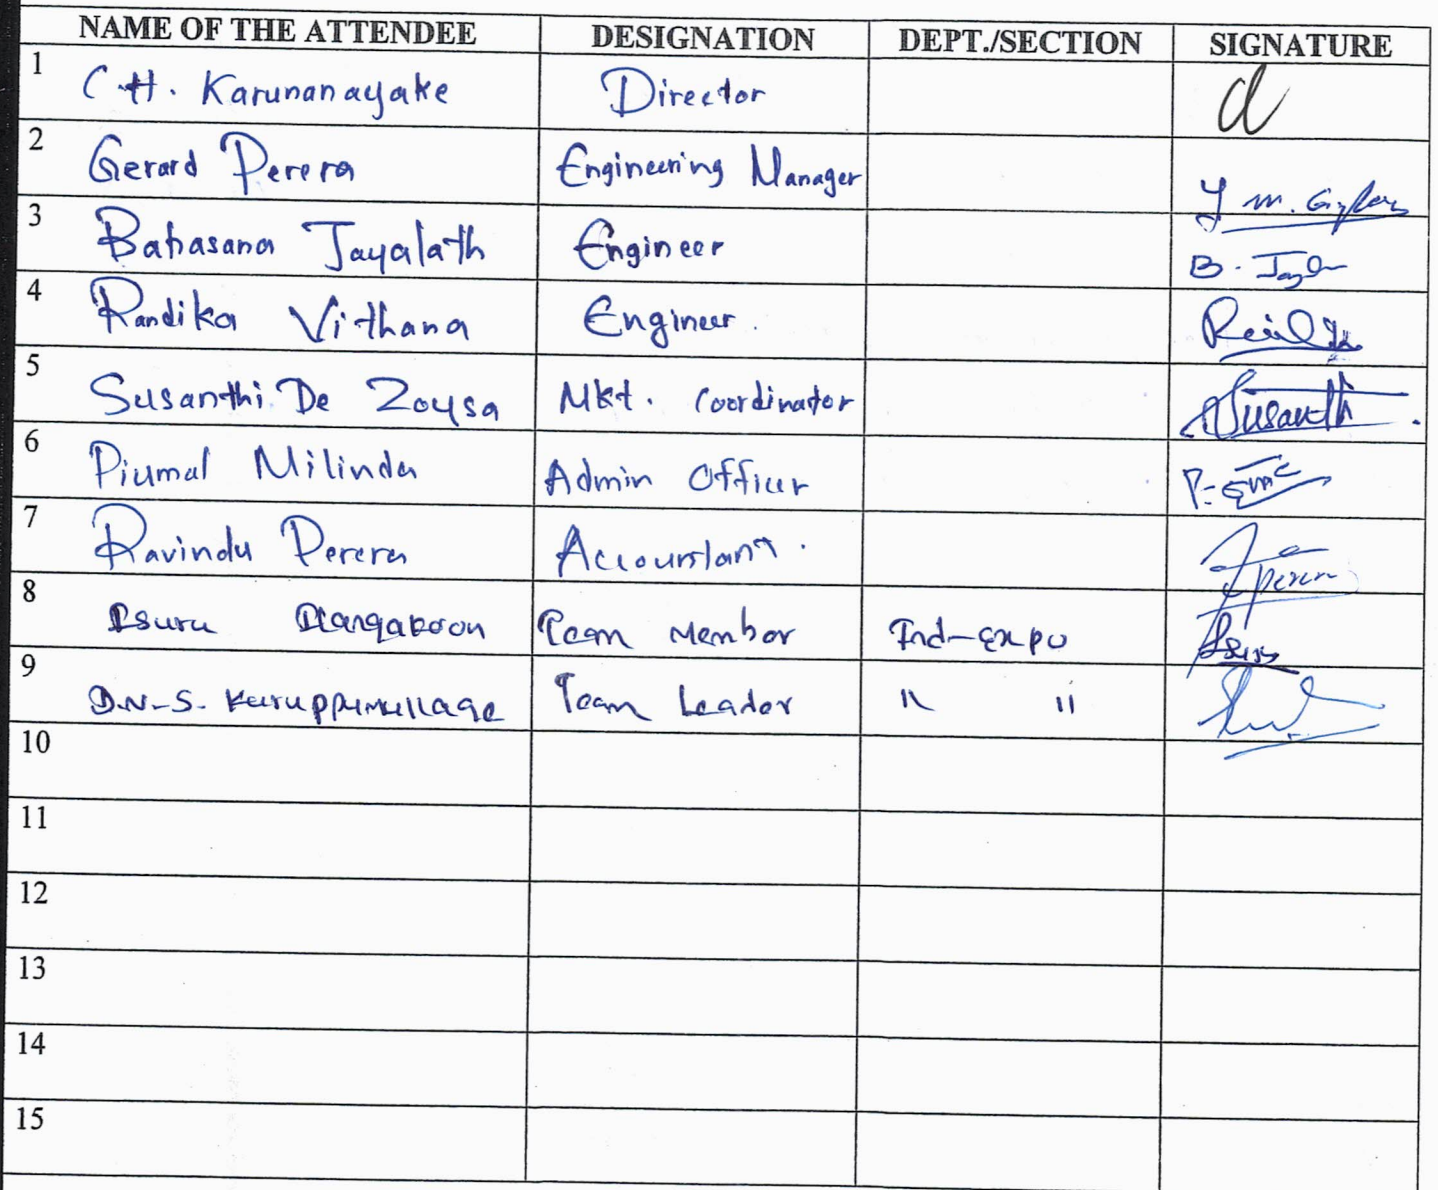 NAME OF THE ATTENDEE DESIGNATION DEPT./SECTION SIGNATURE
1 C.H. Karunanayake Director
2 Gerard Perera Engineering Manager
3 Bahasana Jayalath Engineer B. Jay
4 Randika Vithana Engineer.
5 Susanthi De Zoysa Mkt. Coordinator Susanthi
6 Piumal Milinda Admin Officer
7 Ravindu Perera Accountant. Perera
8 Isuru Team Member Ind-Expo
9 D.N.S. Kuruppumullage Team Leader " "
10
11
12
13
14
15